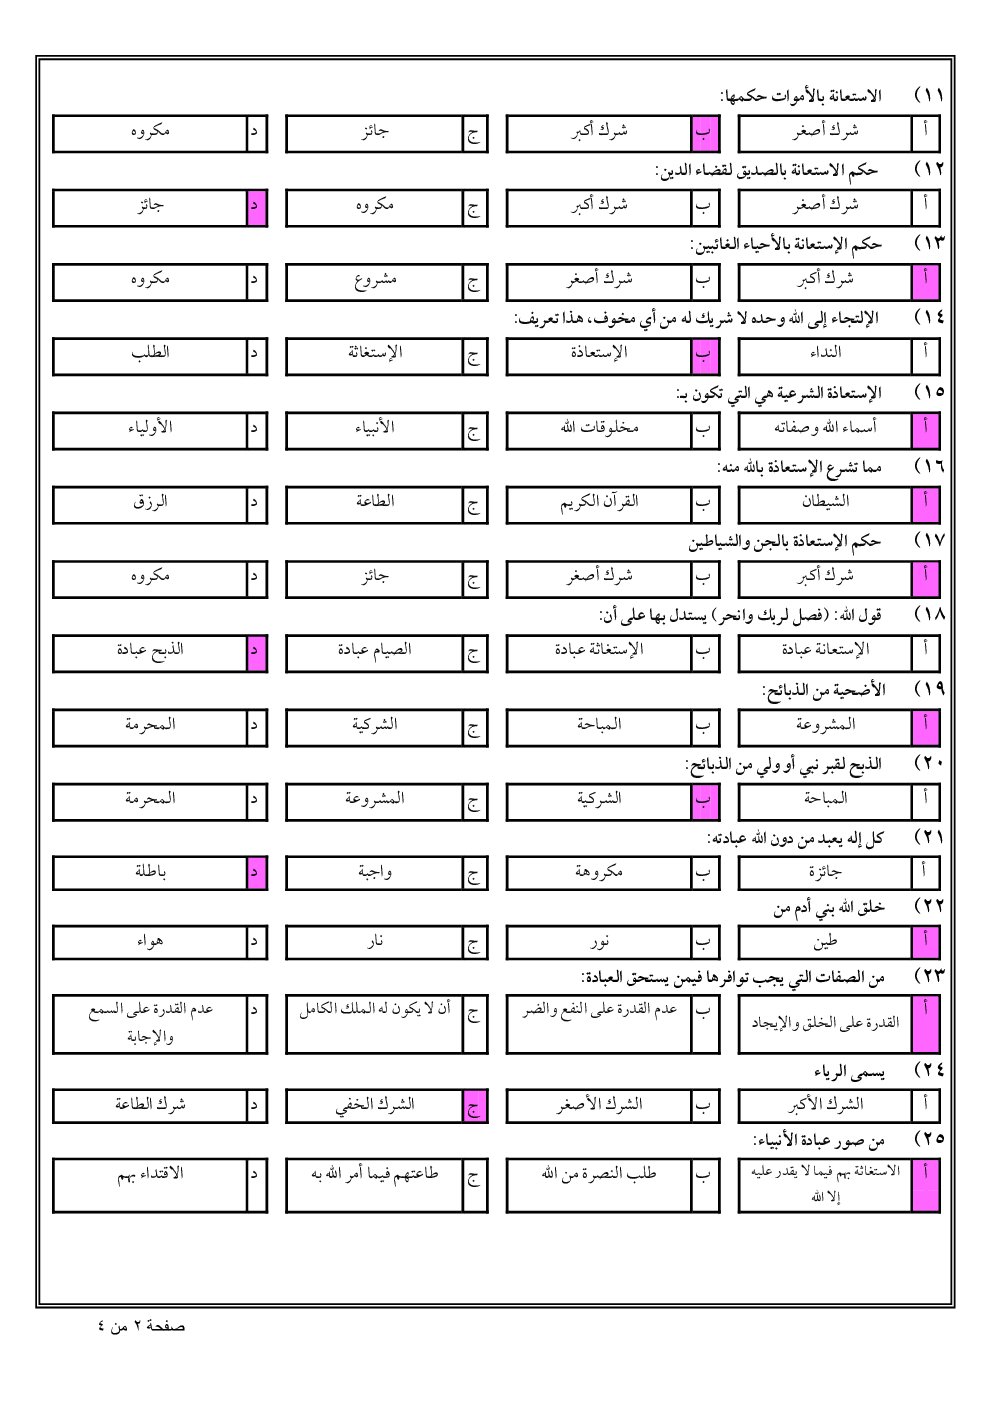 ١١) الاستعانة بالأموات حكمها:
أ شرك أصغر ب شرك أكبر ج جائز د مكروه
١٢) حكم الاستعانة بالصديق لقضاء الدين:
أ شرك أصغر ب شرك أكبر ج مكروه د جائز
١٣) حكم الإستعانة بالأحياء الغائبين:
أ شرك أكبر ب شرك أصغر ج مشروع د مكروه
١٤) الإلتجاء إلى الله وحده لا شريك له من أي مخوف، هذا تعريف:
أ النداء ب الإستعاذة ج الإستغاثة د الطلب
١٥) الإستعاذة الشرعية هي التي تكون بـ:
أ أسماء الله وصفاته ب مخلوقات الله ج الأنبياء د الأولياء
١٦) مما تشرع الإستعاذة بالله منه:
أ الشيطان ب القرآن الكريم ج الطاعة د الرزق
١٧) حكم الإستعاذة بالجن والشياطين
أ شرك أكبر ب شرك أصغر ج جائز د مكروه
١٨) قول الله: (فصل لربك وانحر) يستدل بها على أن:
أ الإستعانة عبادة ب الإستغاثة عبادة ج الصيام عبادة د الذبح عبادة
١٩) الأضحية من الذبائح:
أ المشروعة ب المباحة ج الشركية د المحرمة
٢٠) الذبح لقبر نبي أو ولي من الذبائح:
أ المباحة ب الشركية ج المشروعة د المحرمة
٢١) كل إله يعبد من دون الله عبادته:
أ جائزة ب مكروهة ج واجبة د باطلة
٢٢) خلق الله بني أدم من
أ طين ب نور ج نار د هواء
٢٣) من الصفات التي يجب توافرها فيمن يستحق العبادة:
أ القدرة على الخلق والإيجاد ب عدم القدرة على النفع والضر ج أن لا يكون له الملك الكامل د عدم القدرة على السمع
والإجابة
٢٤) يسمى الرياء
أ الشرك الأكبر ب الشرك الأصغر ج الشرك الخفي د شرك الطاعة
٢٥) من صور عبادة الأنبياء:
أ الاستغاثة بهم فيما لا يقدر عليه ب طلب النصرة من الله ج طاعتهم فيما أمر الله به د الاقتداء بهم
إلا الله
صفحة ٢ من ٤